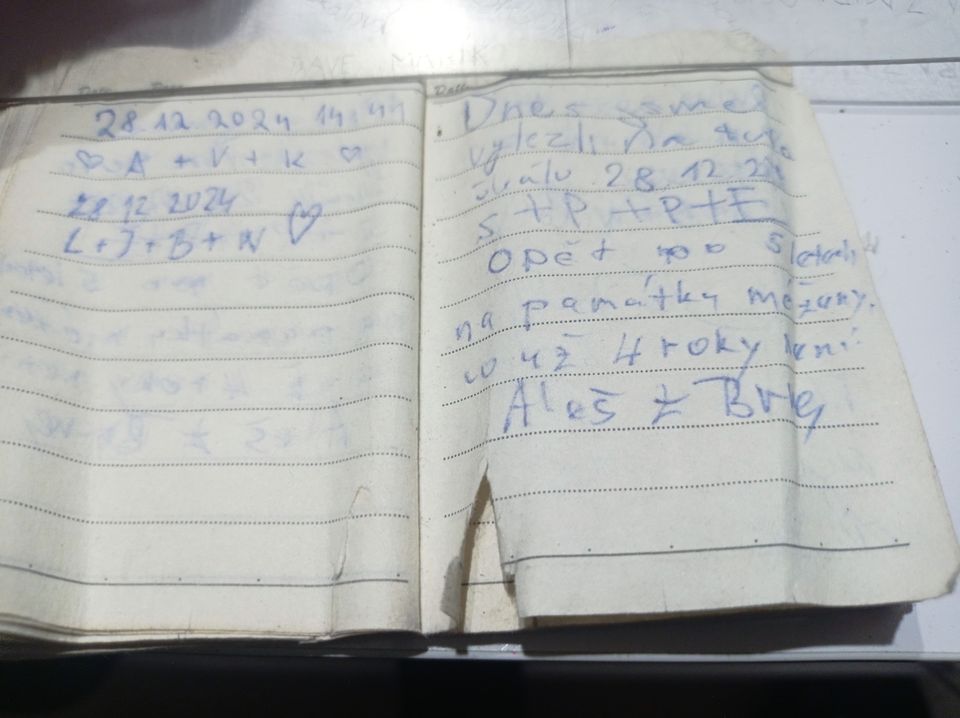 28.12.2024 14:41
♡ A + V + K ♡
28.12.2024
L + J + B + N ♡
Dnes jsme
vylezli na tuto
skálu 28.12.24
S + P + P + E
Opět po 5 letech
na památku
už 4 roky není
Aleš z Brna